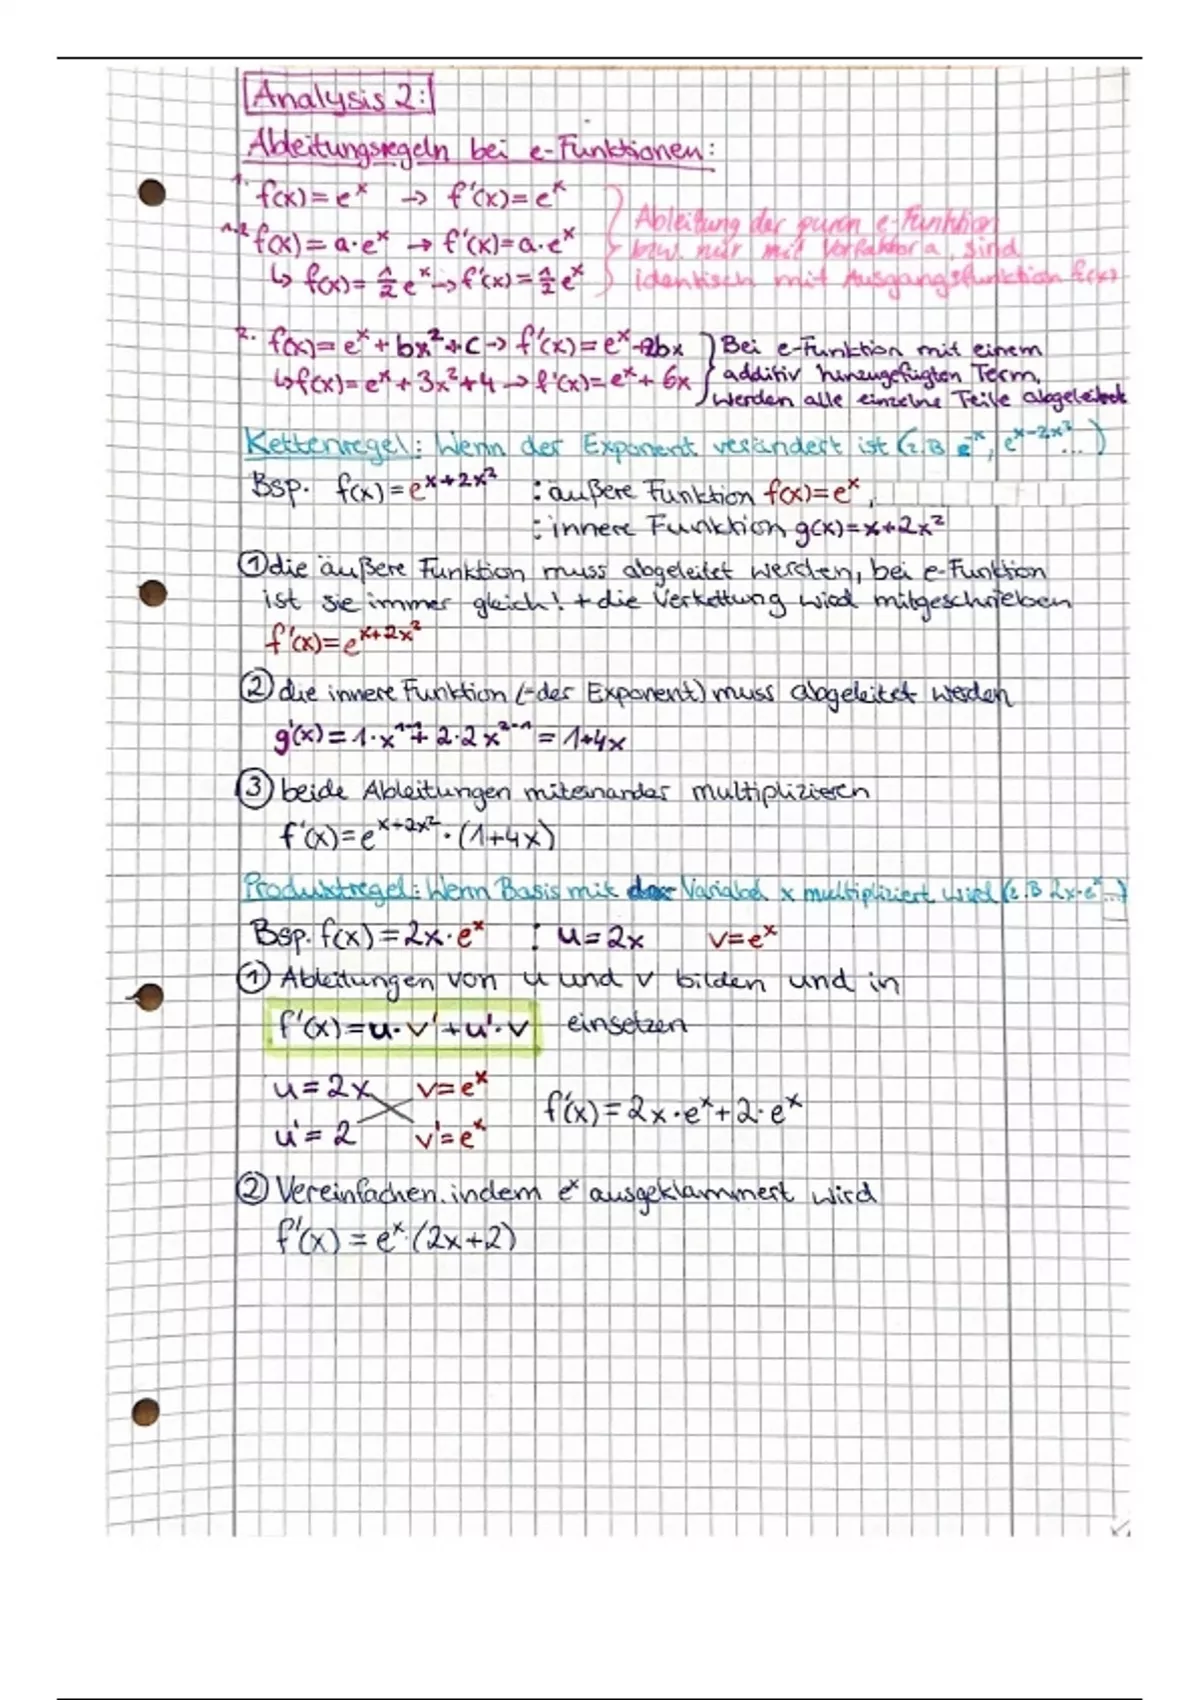 Analysis 2:
Ableitungsregeln bei e-Funktionen:
1. f(x) = e^x → f'(x) = e^x
1.2 f(x) = a·e^x → f'(x) = a·e^x
↳ f(x) = 1/2 e^x → f'(x) = 1/2 e^x
Ableitung der puren e-Funktion
bzw. nur mit Vorfaktor a, sind
identisch mit Ausgangsfunktion f(x)
2. f(x) = e^x + bx^2 + c → f'(x) = e^x + 2bx
↳ f(x) = e^x + 3x^2 + 4 → f'(x) = e^x + 6x
Bei e-Funktion mit einem
additiv hinzugefügten Term,
werden alle einzelne Teile abgeleitet
Kettenregel: Wenn der Exponent verändert ist (z.B e^-x, e^x-2x^2 ...)
Bsp. f(x) = e^x+2x^2 : äußere Funktion f(x) = e^x,
: innere Funktion g(x) = x+2x^2
① die äußere Funktion muss abgeleitet werden, bei e-Funktion
ist sie immer gleich! + die Verkettung wird mitgeschrieben
f'(x) = e^x+2x^2
② die innere Funktion (=der Exponent) muss abgeleitet werden
g'(x) = 1·x^1-1 + 2·2x^2-1 = 1+4x
③ beide Ableitungen miteinander multiplizieren
f'(x) = e^x+2x^2 · (1+4x)
Produktregel: Wenn Basis mit der Variabel x multipliziert wird (z.B 2x·e^x...)
Bsp. f(x) = 2x·e^x : u = 2x v = e^x
① Ableitungen von u und v bilden und in
f'(x) = u·v' + u'·v einsetzen
u = 2x v = e^x
u' = 2 v' = e^x
f'(x) = 2x·e^x + 2·e^x
② Vereinfachen, indem e^x ausgeklammert wird
f'(x) = e^x·(2x+2)